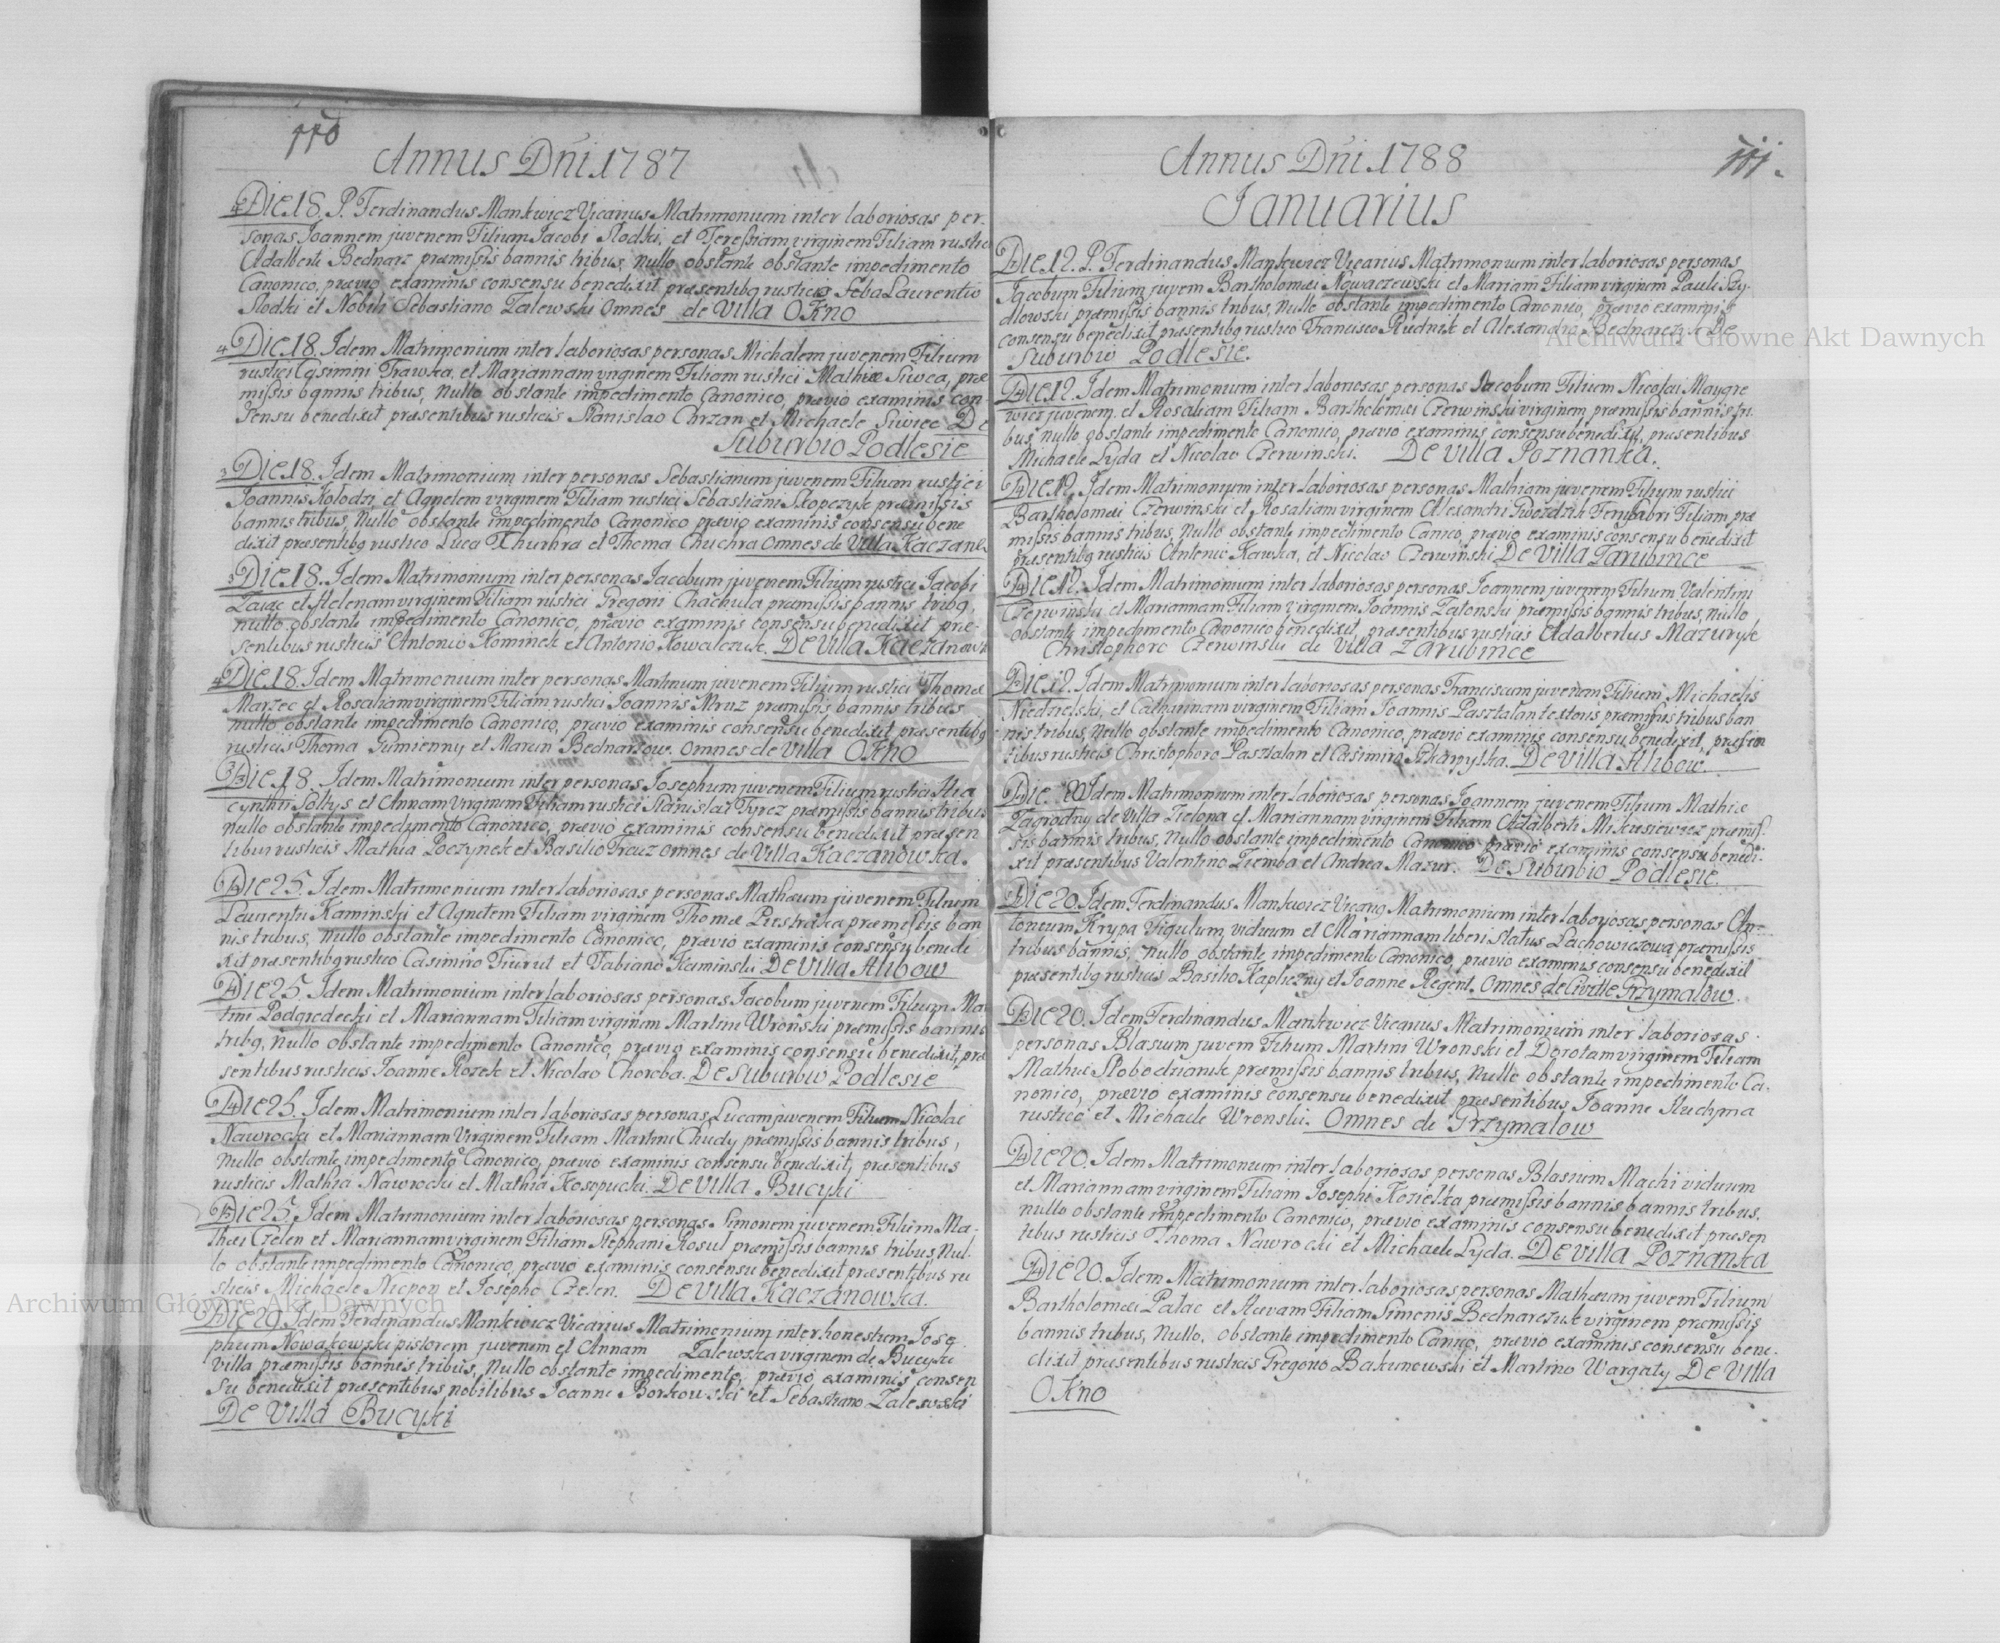 110
Annus Dni 1787
Die 18. P. Ferdinandus Mankiewicz Vicarius Matrimonium inter laboriosas per-
sonas Joannem juvenem Filium Jacobi Slodki, et Teressiam virginem Filiam rustici
Adalberti Bednarz præmissis bannis tribus, Nullo obstante obstante impedimento
Canonico, prævio examinis consensu benedixit præsentibq rusticis Laurentio
Slodki et Nobili Sebastiano Zalewski Omnes de Villa Okno
4 Die 18. Idem Matrimonium inter laboriosas personas Michalem juvenem Filium
rustici Casimiri Trawka, et Mariannam virginem Filiam rustici Mathiæ Siwca, præ
missis bannis tribus, Nullo obstante impedimento Canonico, prævio examinis con-
sensu benedixit præsentibus rusticis Stanislao Chrzan et Michaele Siwiec De
Suburbio Podlesie
3 Die 18. Idem Matrimonium inter personas Sebastianum juvenem Filium rustici
Joannis Kolodzi, et Agnetem virginem Filiam rustici Sebastiani Skopczyk præmissis
bannis tribus, Nullo obstante impedimento Canonico prævio examinis consensu bene
dixit præsentibq rustico Luca et Thoma Chuchra Omnes de Villa Kaczano
3 Die 18. Idem Matrimonium inter personas Jacobum juvenem Filium rustici Jacobi
Zaiac et Helenam virginem Filiam rustici Gregorii Chachula præmissis bannis tribq,
nullo obstante impedimento Canonico, prævio examinis consensu benedixit præ-
sentibus rusticis Antonio Kominek et Antonio Kowalczuk. De Villa Kaczanow
4 Die 18. Idem Matrimonium inter personas Martinum juvenem Filium rustici Thomæ
Marzec et Rosaliam virginem Filiam rustici Joannis Mruz præmissis bannis tribus
nullo obstante impedimento Canonico, prævio examinis consensu benedixit præsentibq
rusticis Thoma Gumienny et Marcin Bednarzow. Omnes de Villa Okno
Die 18. Idem Matrimonium inter personas Josephum juvenem Filium rustici Hia
cynthi Soltys et Annam virginem Filiam rustici Stanislai Gyrez præmissis bannis tribus
nullo obstante impedimento Canonico, prævio examinis consensu benedixit præsen
tibus rusticis Mathia Poczynek et Basilio Omnes de Villa Kaczanowka.
Die 25. Idem Matrimonium inter laboriosas personas Mathæum juvenem Filium
Laurentii Kaminski et Agnetem Filiam virginem Thomæ Piestraka præmissis ban
nis tribus, Nullo obstante impedimento Canonico, prævio examinis consensu benedi
xit præsentibq rustico Casimiro Fiurut et Fabiano Kaminski De Villa Alibow
Die 25. Idem Matrimonium inter laboriosas personas Jacobum juvenem Filium Mar
tini Podgrodecki et Mariannam Filiam virginem Martini Wronski præmissis bannis
tribq, Nullo obstante impedimento Canonico, prævio examinis consensu benedixit, præ
sentibus rusticis Joanne Rozek et Nicolao Choroba. De Suburbio Podlesie
Die 25. Idem Matrimonium inter laboriosas personas Lucam juvenem Filium Nicolai
Nawrocki et Mariannam Virginem Filiam Martini Chudy præmissis bannis tribus,
Nullo obstante impedimento Canonico, prævio examinis consensu benedixit, præsentibus
rusticis Mathia Nawrocki et Mathia Kosopucki. De Villa Bucyki
Die 25. Idem Matrimonium inter laboriosas personas Simonem juvenem Filium Ma-
thæi Czelen et Mariannam virginem Filiam Stephani Rosul præmissis bannis tribus Nul-
lo obstante impedimento Canonico, prævio examinis consensu benedixit præsentibus ru
sticis Michaele Niepon et Josepho Czelen. De Villa Kaczanowka.
Die 29. Idem Ferdinandus Mankiewicz Vicarius Matrimonium inter honestum Jose
phum Nowakowski pistorem juvenem et Annam Zalewska virginem de Bucyki
villa præmissis bannis tribus, Nullo obstante impedimento, prævio examinis consen
su benedixit præsentibus nobilibus Joanne Borkowski et Sebastiano Zalewski
De Villa Bucyki
111.
Annus Dni 1788
Januarius
Die 12. P. Ferdinandus Mankiewicz Vicarius Matrimonium inter laboriosas personas
Jacobum Filium juvem Bartholomæi Nowaczewski et Mariam Filiam virginem Pauli Szy-
dlowski præmissis bannis tribus, Nullo obstante impedimento Canonico, prævio examinis
consensu benedixit præsentibq rustico Francisco Rudnik et Alexandro Bednarczyk De
Suburbio Podlesie.
Die 12. Idem Matrimonium inter laboriosas personas Jacobum Filium Nicolai Maygre
wicz juvenem et Rosaliam Filiam Bartholomæi Czerwinski virginem præmissis bannis tri
bus, nullo obstante impedimento Canonico, prævio examinis consensu benedixit, præsentibus
Michaele Lyda et Nicolao Czerwinski. De Villa Poznanka.
Die 12. Idem Matrimonium inter laboriosas personas Mathiam juvenem Filium rustici
Bartholomæi Czerwinski et Rosaliam virginem Alexandri Gwozdzik Ferrifabri Filiam præ
missis bannis tribus, Nullo obstante impedimento Canico, prævio examinis consensu benedixit
præsentibq rusticis Antonio Kawka, et Nicolao Czerwinski De Villa Zarubince
Die 12. Idem Matrimonium inter laboriosas personas Joannem juvenem Filium Valentini
Czerwinski et Mariannam Filiam Virginem Joannis Zatonski præmissis bannis tribus, Nullo
obstante impedimento Canonico benedixit, præsentibus rusticis Adalbertus Mazuryk
Christophoro Czerwinski de Villa Zarubince
Die 12. Idem Matrimonium inter laboriosas personas Franciscum juvenem Filium Michaelis
Niedzielski, et Catharinam virginem Filiam Joannis Pasztalan textoris præmissis tribus ban
nis tribus, Nullo obstante impedimento Canonico, prævio examinis consensu benedixit, præsen
tibus rusticis Christophoro Pasztalan et Casimiro Szkarpytka. De Villa Alibow.
Die 20. Idem Matrimonium inter laboriosas personas Joannem juvenem Filium Mathiæ
Zagrodny de Villa Zielona et Mariannam virginem Filiam Adalberti Mikusiewicz præmis
sis bannis tribus, Nullo obstante impedimento Canonico prævio examinis consensu benedi-
xit præsentibus Valentino Ziemba et Andrea Mazur. De Suburbio Podlesie.
Die 20. Idem Ferdinandus Mankiewicz Vicariq Matrimonium inter laboriosas personas An-
tonium Krypa Figulum viduum et Mariannam liberi status Lachowiczowa præmissis
tribus bannis, Nullo obstante impedimento Canonico, prævio examinis consensu benedixit
præsentibq rusticis Basilio Kapliczny et Joanne Regent. Omnes de Civitte Grzymalow.
Die 20. Idem Ferdinandus Mankiewicz Vicarius Matrimonium inter laboriosas
personas Blasium juvem Filium Martini Wronski et Dorotam virginem Filiam
Mathiæ Slobodzianik præmissis bannis tribus, Nullo obstante impedimento Ca-
nonico, prævio examinis consensu benedixit præsentibus Joanne Kuchma
rustico et Michaele Wronski. Omnes de Grzymalow
Die 20. Idem Matrimonium inter laboriosas personas Blasium Machi viduum
et Mariannam virginem Filiam Josephi Kozielka præmissis bannis bannis tribus,
nullo obstante impedimento Canonico, prævio examinis consensu benedixit præsen
tibus rusticis Thoma Nawrocki et Michaele Lyda. De Villa Poznanka
Die 20. Idem Matrimonium inter laboriosas personas Mathæum juvem Filium
Bartholomæi Palac et Hevam Filiam Simonis Bednarczuk virginem præmissis
bannis tribus, Nullo, obstante impedimento Canico, prævio examinis consensu bene-
dixit præsentibus rusticis Gregorio Bakunowski et Martino Wargaty De Villa
Okno
Archiwum Główne Akt Dawnych
Archiwum Główne Akt Dawnych